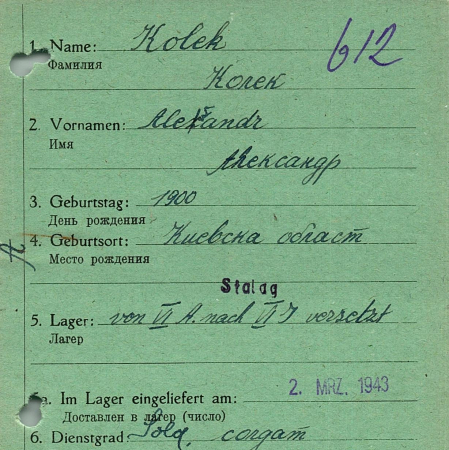 612
1. Name: Kolek
Фамилия
Колек
2. Vornamen: Alexandr
Имя
Александр
3. Geburtstag: 1900
День рождения
4. Geburtsort: Киевска област
Место рождения
Stalag
5. Lager: von VI A. nach VI J versetzt
Лагер
5a. Im Lager eingeliefert am: 2. MRZ. 1943
Доставлен в лагер (число)
6. Dienstgrad: Sold. солдат